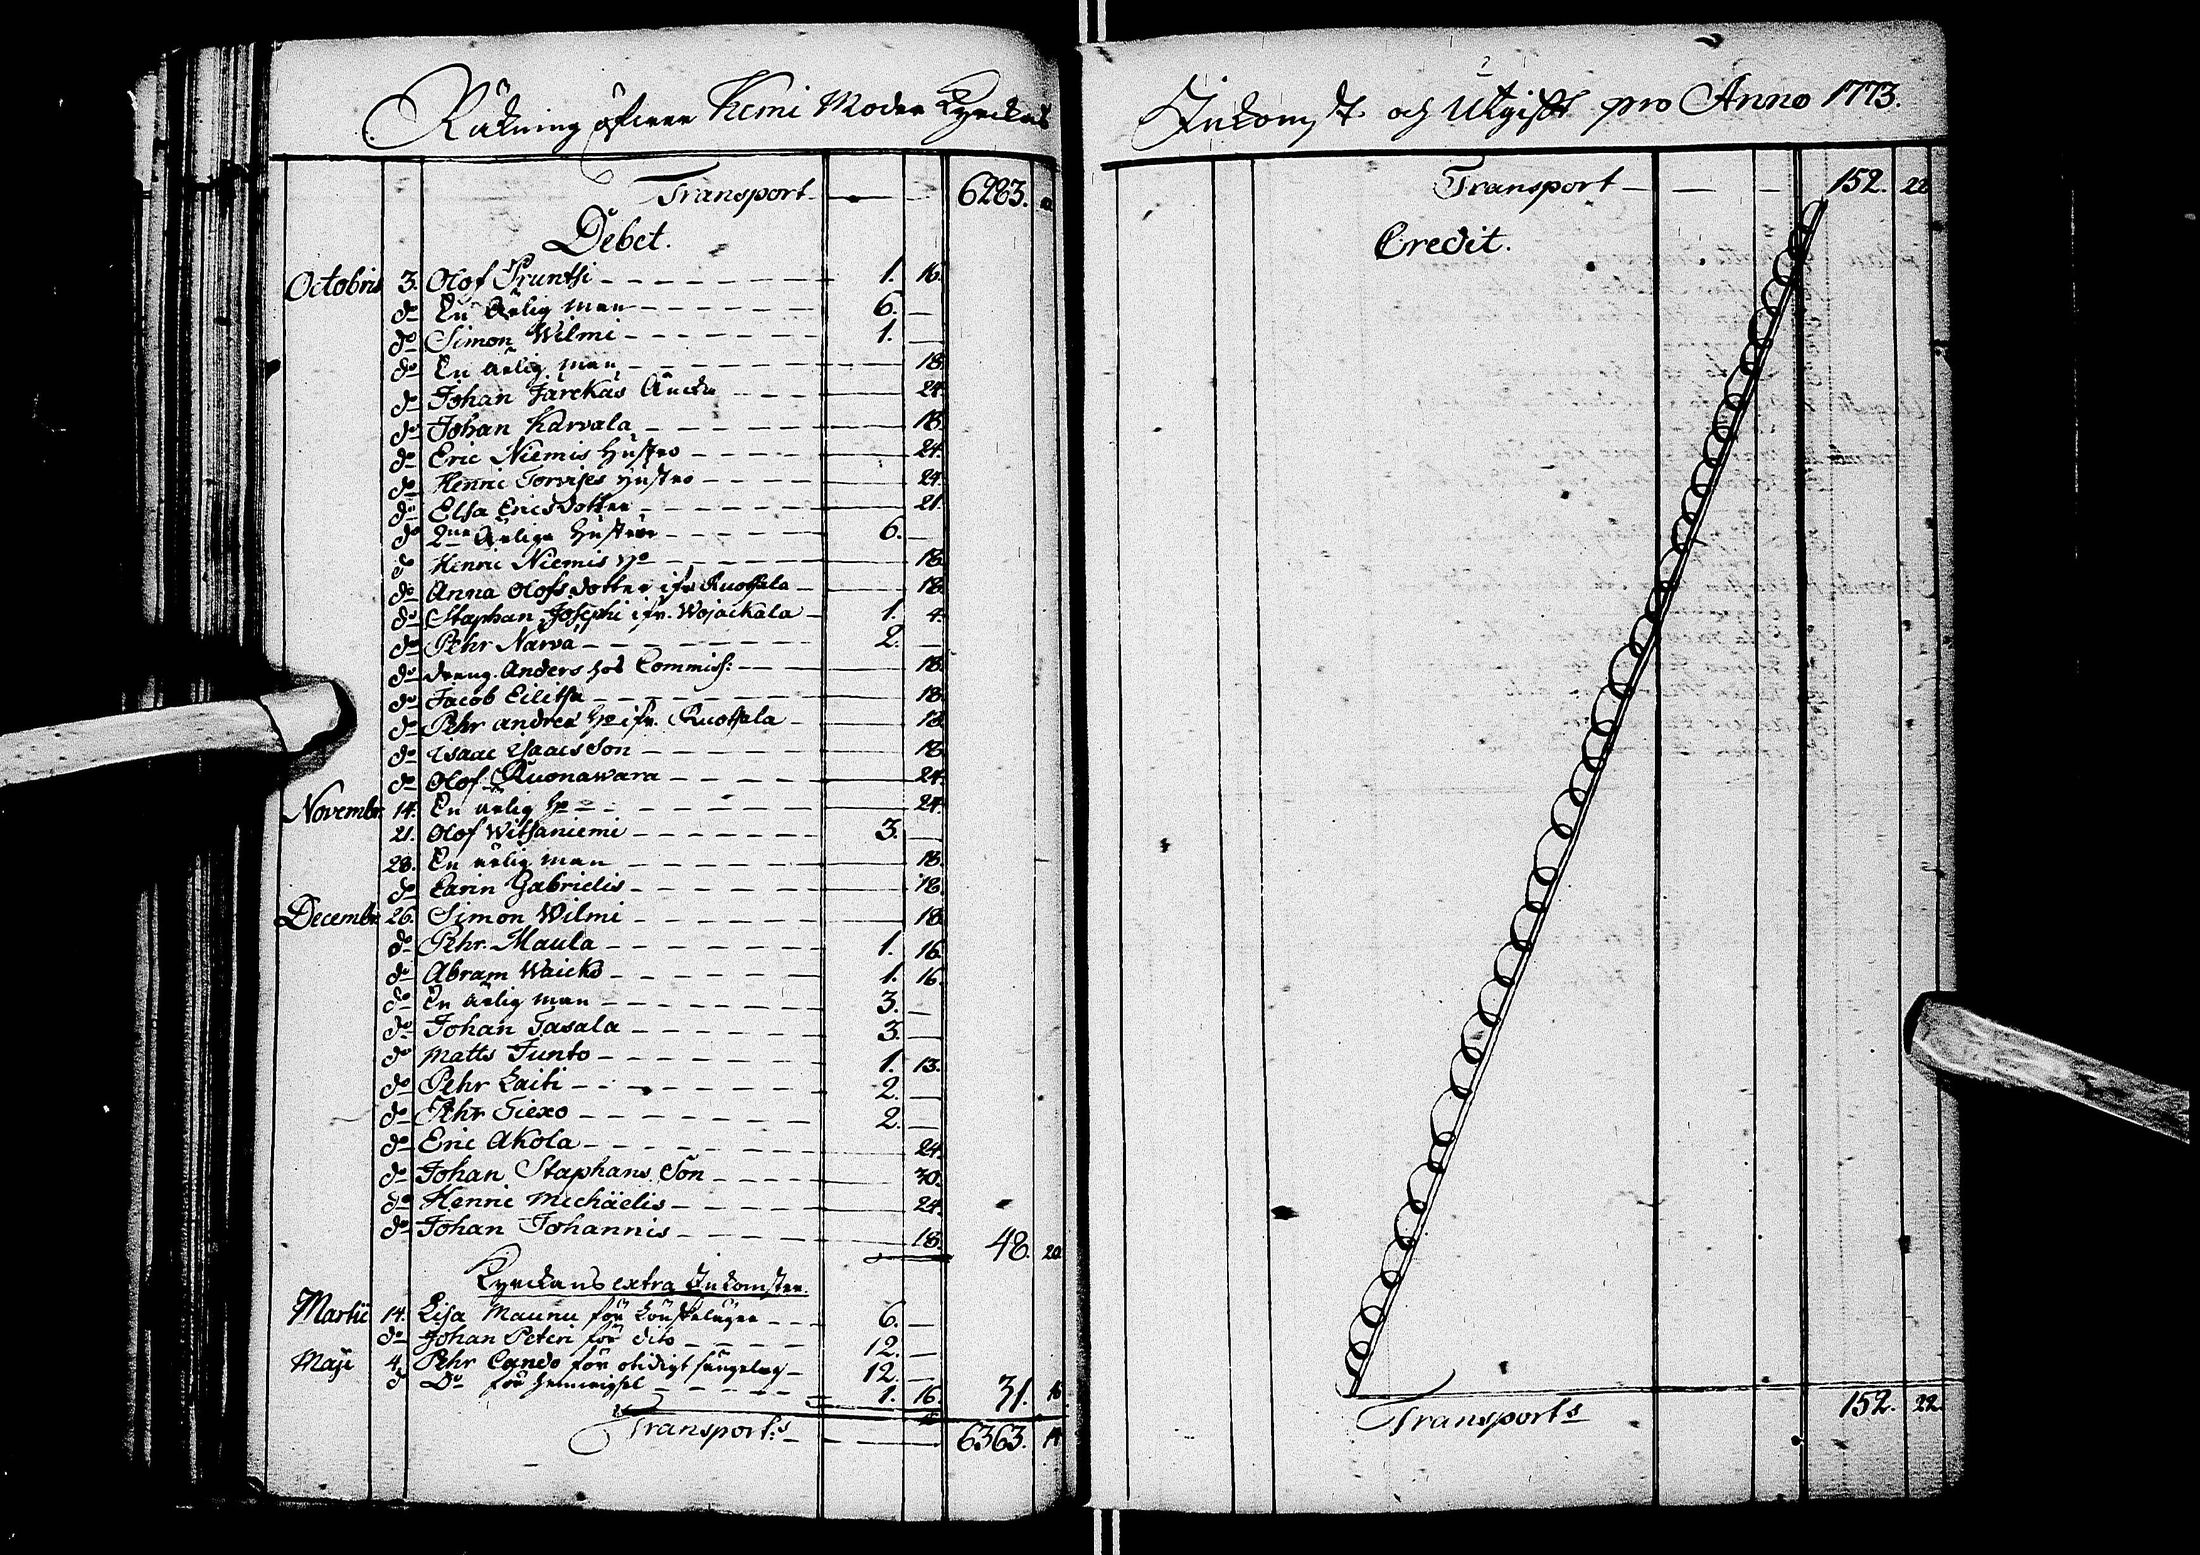 Räkning öfwer Kemi Moder Kyrckas
Transport 6283.
Debet.
Octobris 3. Olof Pruntsi 1. 16.
do En ärlig man 6. —
do Simon Wilmi 1. —
do En ärlig man 18.
do Johan Jarckas Äncka 24.
do Johan Karvala 18.
do Eric Niemis Hustro 24.
do Henric Torvises hustro 24.
do Elsa Ericsdotter 21.
do 2ne Ärliga Hustrur 6. —
do Henric Niemis Ho 18.
do Anna Olofsdotter ifr. Ruottala 18.
do Staphan Josephi ifr. Wojackala 1. 4.
do Pehr Narva 2. —
do dräng Anders hos Commiss: 18.
do Jacob Eilitsa 18.
do Pehr andreæ Ho ifr. Ruottala 18.
do Isaac Isaacsson 18.
do Olof Ruonawara 24.
Novembr. 14. En ärlig Ho 24.
21. Olof Witsaniemi 3. —
28. En ärlig man 18.
do Carin Gabrielis 18.
Decembr. 26. Simon Wilmi 18.
do Pehr Maula 1. 16.
do Abram Waicko 1. 16.
do En ärlig man 3. —
do Johan Tasala 3. —
do Matts Junto 1. 13.
do Pehr Laiti 2. —
do Pehr Tiexo 2. —
do Eric Akola 24.
do Johan Staphans Son 30.
do Henric Michäelis 24.
do Johan Johannis 18. 48. 20.
Kyrckans extra Inkomster.
Martii 14. Lisa Maunu för Lönskeläger 6. —
do Johan Petri för dito 12. —
Maji 4. Pehr Cando för otidigt sängelag 12. —
d Do för 1. 16. 31. 16.
Transport:s 6363. 14.
Inkomst och Utgift pro Anno 1773.
Transport 152. 22
Credit.
Transports 152. 22.